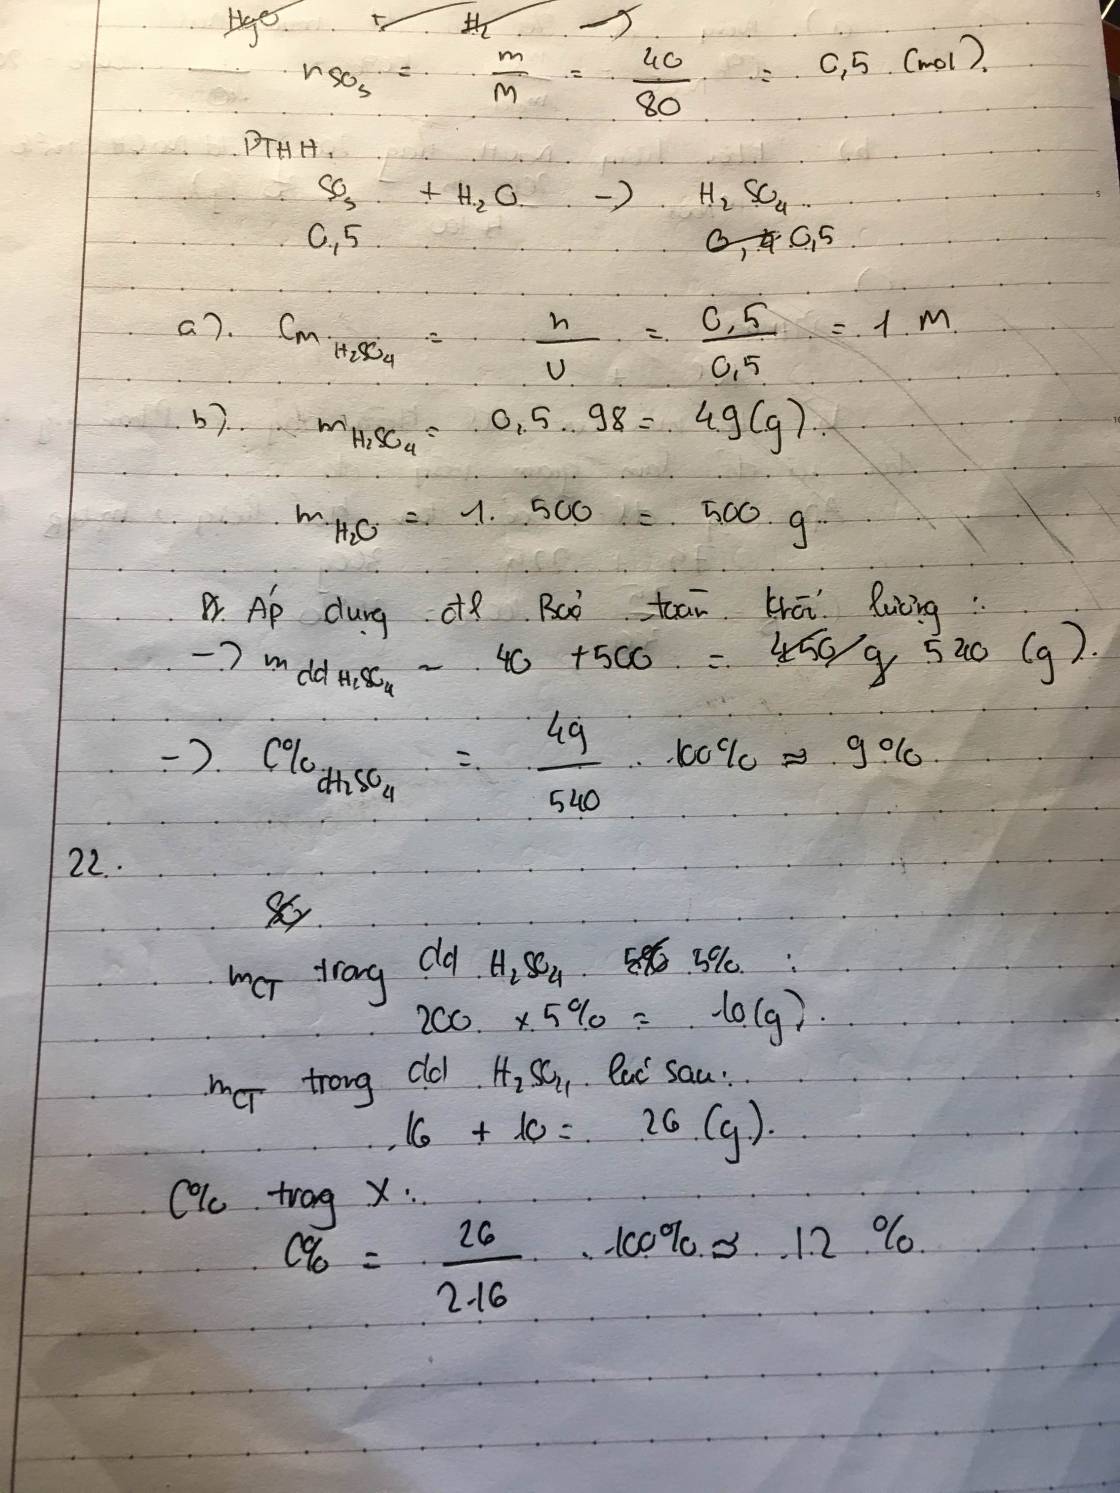 HgO + H₂ →
nSO₃ = m/M = 40/80 = 0,5 (mol).
PTHH.
SO₃ + H₂O → H₂SO₄
0,5 0,5
a). CM H₂SO₄ = n/V = 0,5/0,5 = 1 M
b). mH₂SO₄ = 0,5 . 98 = 49(g).
mH₂O = 1. 500 = 500 g
Áp dụng đl Bảo toàn khối lượng :
→ m dd H₂SO₄ = 40 + 500 = 540 (g).
→ C% H₂SO₄ = 49/540 . 100% ≈ 9%
22.
mCT trong dd H₂SO₄ 5% :
200 x 5% = 10(g).
mCT trong dd H₂SO₄ lúc sau:
16 + 10 = 26 (g).
C% trong X:
C% = 26/216 . 100% ≈ 12 %